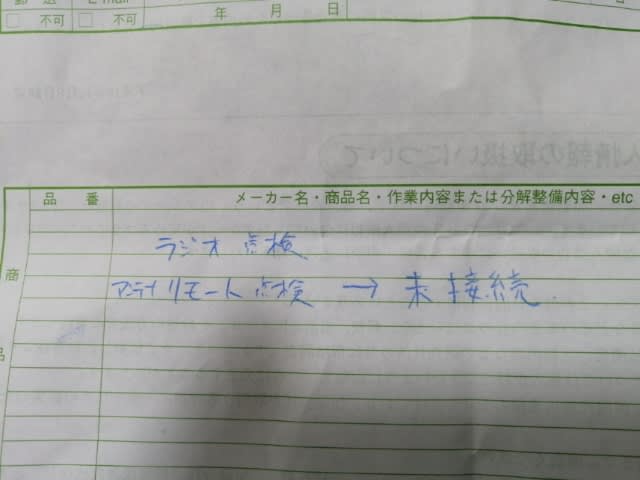 □ 不可 □ 不可 年 月 日
品 番 メーカー名・商品名・作業内容または分解整備内容・etc
ラジオ点検
商 アンテナリモート点検 → 未接続
品